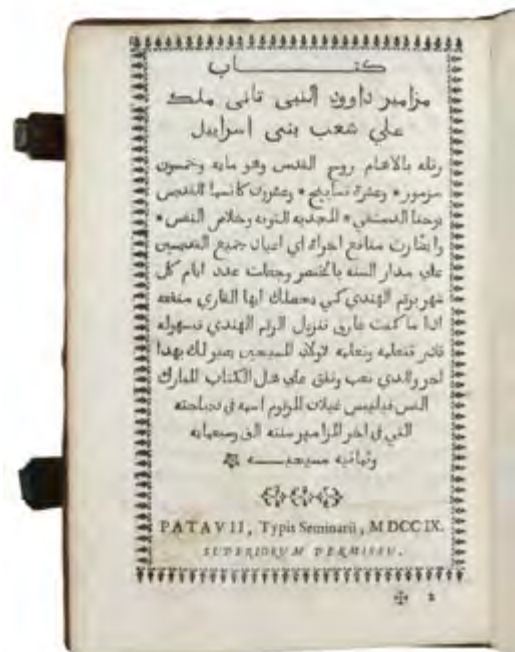 كتاب
مزامير داوود النبي تاني ملك
علي شعب بني اسراييل
رتله بالاهام روح القدس وهو مايه وخمسون
مزمور * وعشرة تسابيح * وعشرون كانسها القديس
يوحنا الدمشقي * المجديه للتوبه وخلاص النفس *
وايضا رت منافع اخراة اي اعياد جميع القديسين
علي مدار السنه بالمختصر وجعلت عدد ايام كل
شهر برقم الهندي كي يحصلك ايها القاري منفعه
اذا ما كنت عارف تنزيل الرقم الهندي بسهوله
قادر تتعلمه وتعلمه لاولاد المسيحيين يصير لك بهدا
اجر والدي تعب ونفق علي هدا الكتاب المبارك
القس فيليبس غيلان المرقوم اسمه في ديباجته
التي في اخر المزامير سنة الف وسبعمايه
وثمانيه مسيحيه
PATAVII, Typis Seminarii, MDCCIX.
SUPERIORUM PERMISSU.
✠ 2